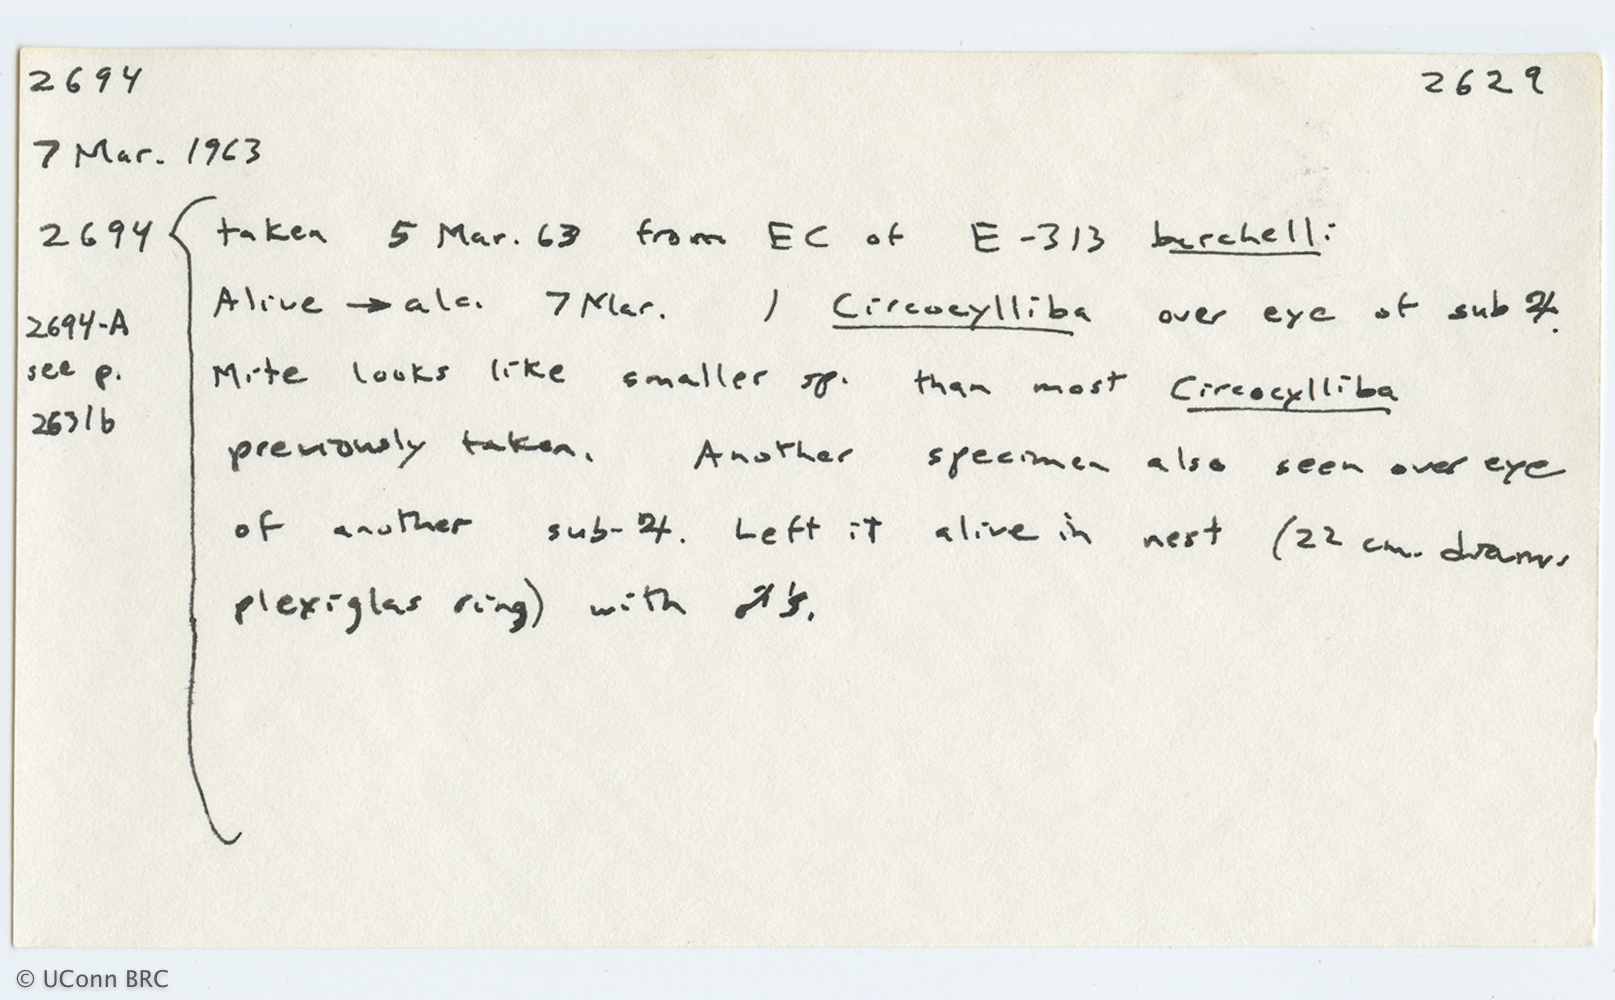 2694 2629
7 Mar. 1963
2694 { taken 5 Mar. 63 from EC of E-313 burchelli
Alive → alc. 7 Mar. 1 Circocylliba over eye of sub ♃.
2694-A
see p.
2631b
Mite looks like smaller sp. than most Circocylliba
previously taken. Another specimen also seen over eye
of another sub-♃. Left it alive in nest (22 cm. diam.
plexiglas ring) with
© UConn BRC